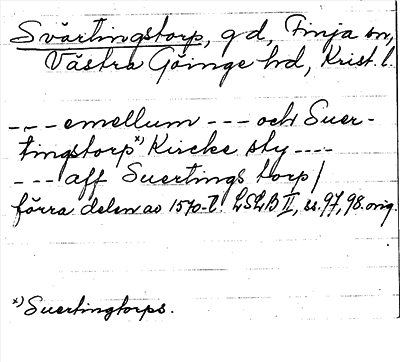 Svärtingstorp, gd, Finja sn,
Västra Göinge hd, Krist. l.
--- emellum --- och Suer-
tingstorp*) Kircke sty ----
--- aff Suertings torp/
förra delen av 1570-t. LSLB II, ss. 97, 98. orig.
*) Suertingtorps.